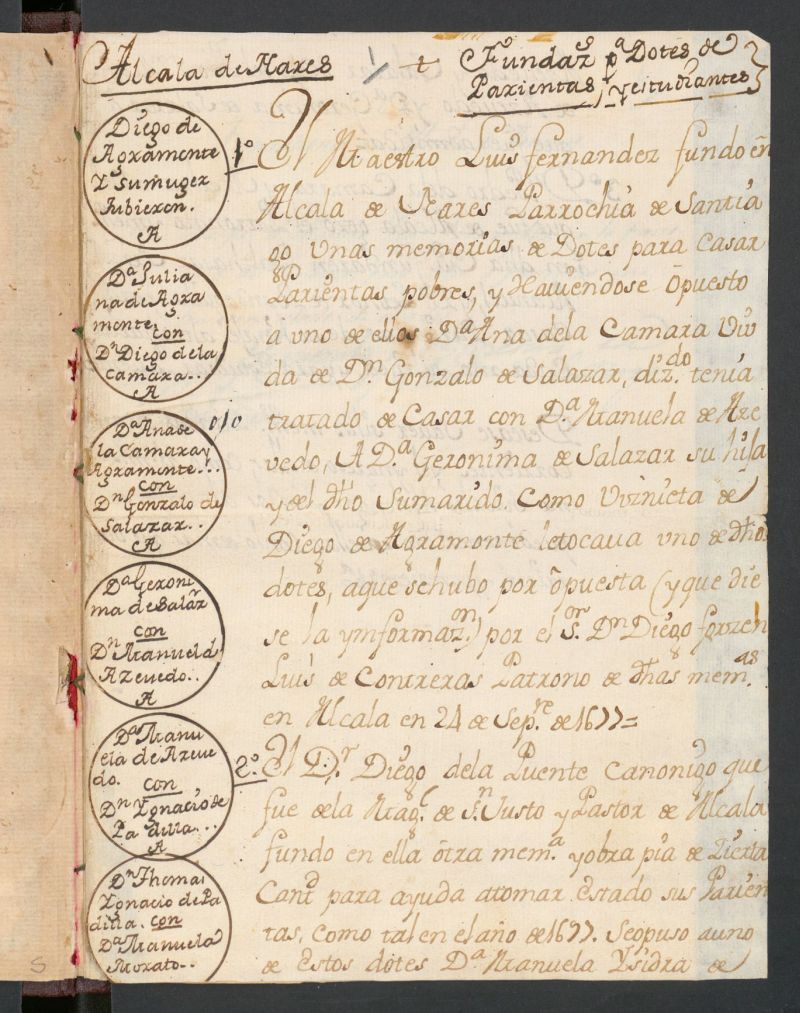 Alcala de Nares
+
Fundazs pa Dotes de
Parientas, y estudiantes
Diego de
Agramonte
Y sumuger
tubieron.
A
Da Julia
na de Agra
monte,
con
Dn Diego dela
Camara..
A
Da Ana de
la Camara y
Agramonte...
con
Dn Gonzalo de
Salazar..
A
Da Geroni
ma de Salazr
con
Dn Manuel d
Azevedo..
A
Da Manu
ela de Azeve
do. con
Dn Ygnacio de
Padilla...
A
Dn Thomas
Ygnacio de Pa
dilla. con
Da Manuela
Morato..
1o El Maestro Luis fernandez fundo en
Alcala de Nares Parrochia de Santia
go Unas memorias de Dotes para Casar
Parientas pobres, y Haviendose Opuesto
a vno de ellos Da Ana dela Camara Viv
da de Dn Gonzalo de Salazar, dizdo. tenia
tratado de Casar con Da. Manuela de Aze
vedo, A Da Geronima de Salazar su hija
y del dho Sumarido. Como Vizinieta de
Diego de Agramonte letocava vno de dhos
dotes, aque sehubo por opuesta (y que die
se la ynformazon) por el Sor. Dn Diego
Luis de Contreras Patrono de dhas memas.
en Alcala en 24 de Sepre. de 1677=
2o. El Dr. Diego dela Puente Canonigo que
fue dela Magl. de Sn. Justo y Pastor de Alcala
fundo en ella otra mema. y obra pia de Zierta
Cantd para ayuda atomar Estado sus Parien
tas, como tal en el año de 1677. Seopuso auno
de Estos dotes Da Manuela Ysidra de
S